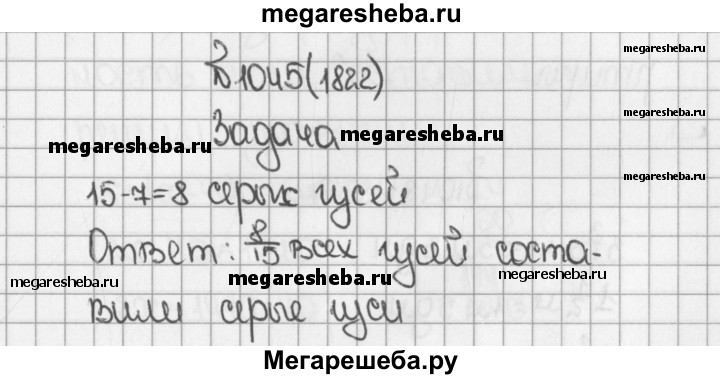 megaresheba.ru
№1045(1822)
megaresheba.ru
Задача
megaresheba.ru
megaresheba.ru
megaresheba.ru
15-7=8 серых гусей
megaresheba.ru
Ответ: 8/15 всех гусей соста-
megaresheba.ru
megaresheba.ru
megaresheba.ru
вили серые гуси
Мегарешеба.ру